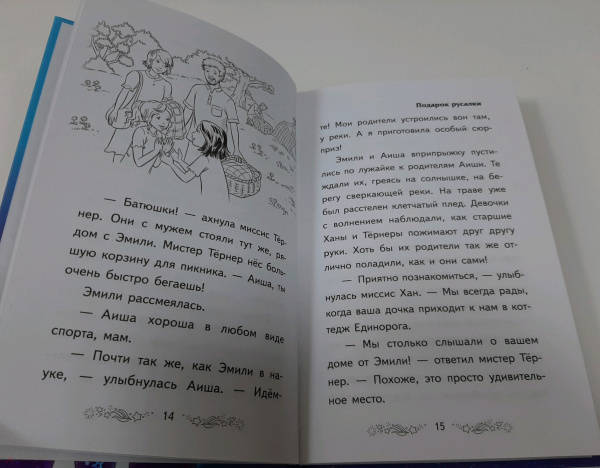 — Батюшки! — ахнула миссис Тёр-
нер. Они с мужем стояли тут же, ря-
дом с Эмили. Мистер Тёрнер нёс боль-
шую корзину для пикника. — Аиша, ты
очень быстро бегаешь!
Эмили рассмеялась.
— Аиша хороша в любом виде
спорта, мам.
— Почти так же, как Эмили в на-
уке, — улыбнулась Аиша. — Идём-
14
Подарок русалки
те! Мои родители устроились вон там,
у реки. А я приготовила особый сюр-
приз!
Эмили и Аиша вприпрыжку пусти-
лись по лужайке к родителям Аиши. Те
ждали их, греясь на солнышке, на бе-
регу сверкающей реки. На траве уже
был расстелен клетчатый плед. Девочки
с волнением наблюдали, как старшие
Ханы и Тёрнеры пожимают друг другу
руки. Хоть бы их родители так же от-
лично поладили, как и они сами!
— Приятно познакомиться, — улыб-
нулась миссис Хан. — Мы всегда рады,
когда ваша дочка приходит к нам в кот-
тедж Единорога.
— Мы столько слышали о вашем
доме от Эмили! — ответил мистер Тёр-
нер. — Похоже, это просто удивитель-
ное место.
15